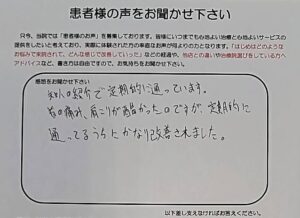 患者様の声をお聞かせ下さい
只今、当院では「患者様のお声」を募集しております。皆様にいつまでも心地よい治療と心地よいサービスの
提供をしたいと考えており、実際に体験された方の率直なお声が何よりのたよりとなります。「はじめはどのような
お悩みで来院されて、どんな感じで改善していった」などの経過や、他店との違いや治療院選びをしている方へ
アドバイスなど、書き方は自由ですので、お気持ちをお聞かせ下さい。
感想をお聞かせ下さい
知人の紹介で定期的に通っています。
首の痛み、肩こりが酷かったのですが、定期的に
通ってるうちにかなり改善されました。
以下差し支えなければお答えください。